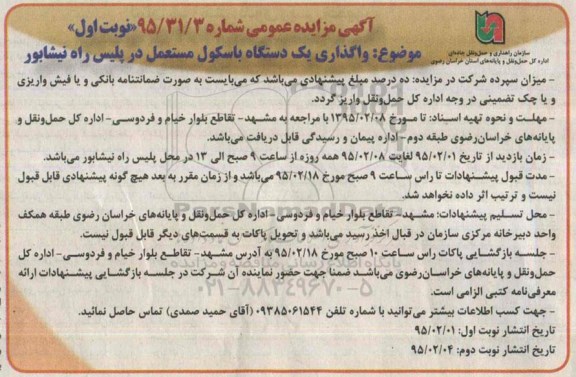 سازمان راهداری و حمل‌ونقل جاده‌ای
اداره کل حمل‌ونقل و پایانه‌های استان خراسان رضوی
آگهی مزایده عمومی شماره ۹۵/۳۱/۳ «نوبت اول»
موضوع: واگذاری یک دستگاه باسکول مستعمل در پلیس راه نیشابور
- میزان سپرده شرکت در مزایده: ده درصد مبلغ پیشنهادی می‌باشد که می‌بایست به صورت ضمانتنامه بانکی و یا فیش واریزی
و یا چک تضمینی در وجه اداره کل حمل‌ونقل واریز گردد.
- مهلت و نحوه تهیه اسناد: تا مورخ ۱۳۹۵/۰۲/۰۸ با مراجعه به مشهد- تقاطع بلوار خیام و فردوسی- اداره کل حمل‌ونقل و
پایانه‌های خراسان‌رضوی طبقه دوم- اداره پیمان و رسیدگی قابل دریافت می‌باشد.
- زمان بازدید از تاریخ ۹۵/۰۲/۰۱ لغایت ۹۵/۰۲/۰۸ همه روزه از ساعت ۹ صبح الی ۱۳ در محل پلیس راه نیشابور می‌باشد.
- مدت قبول پیشنهادات تا راس ساعت ۹ صبح مورخ ۹۵/۰۲/۱۸ می‌باشد و از زمان مقرر به بعد هیچ گونه پیشنهادی قابل قبول
نیست و ترتیب اثر داده نخواهد شد.
- محل تسلیم پیشنهادات: مشهد- تقاطع بلوار خیام و فردوسی- اداره کل حمل‌ونقل و پایانه‌های خراسان رضوی طبقه همکف
واحد دبیرخانه مرکزی سازمان در قبال اخذ رسید می‌باشد و تحویل پاکات به قسمت‌های دیگر قابل قبول نیست.
- جلسه بازگشایی پاکات راس ساعت ۱۰ صبح مورخ ۹۵/۰۲/۱۸ به آدرس مشهد- تقاطع بلوار خیام و فردوسی- اداره کل
حمل‌ونقل و پایانه‌های خراسان‌رضوی می‌باشد ضمنا جهت حضور نماینده آن شرکت در جلسه بازگشایی پیشنهادات ارائه
معرفی‌نامه کتبی الزامی است.
- جهت کسب اطلاعات بیشتر می‌توانید با شماره تلفن ۰۹۳۸۵۰۶۱۵۴۴ (آقای حمید صمدی) تماس حاصل نمائید.
تاریخ انتشار نوبت اول: ۹۵/۰۲/۰۱
تاریخ انتشار نوبت دوم: ۹۵/۰۲/۰۴
ParsNamadData
۰۲۱-۸۸۳۴۹۶۷۰-۵